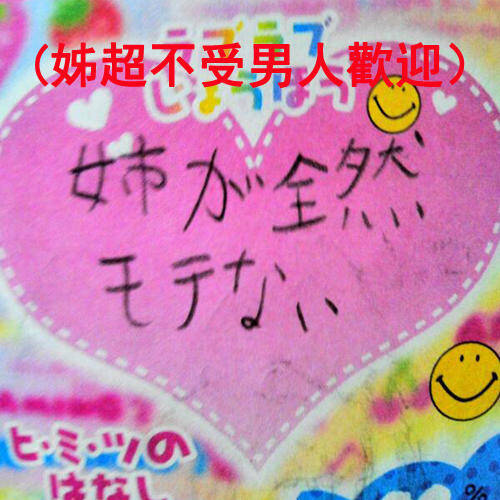 (姊超不受男人歡迎)
ラブラブ
じょうほう
姉が全然
モテない
ヒ・ミ・ツの
はなし
%